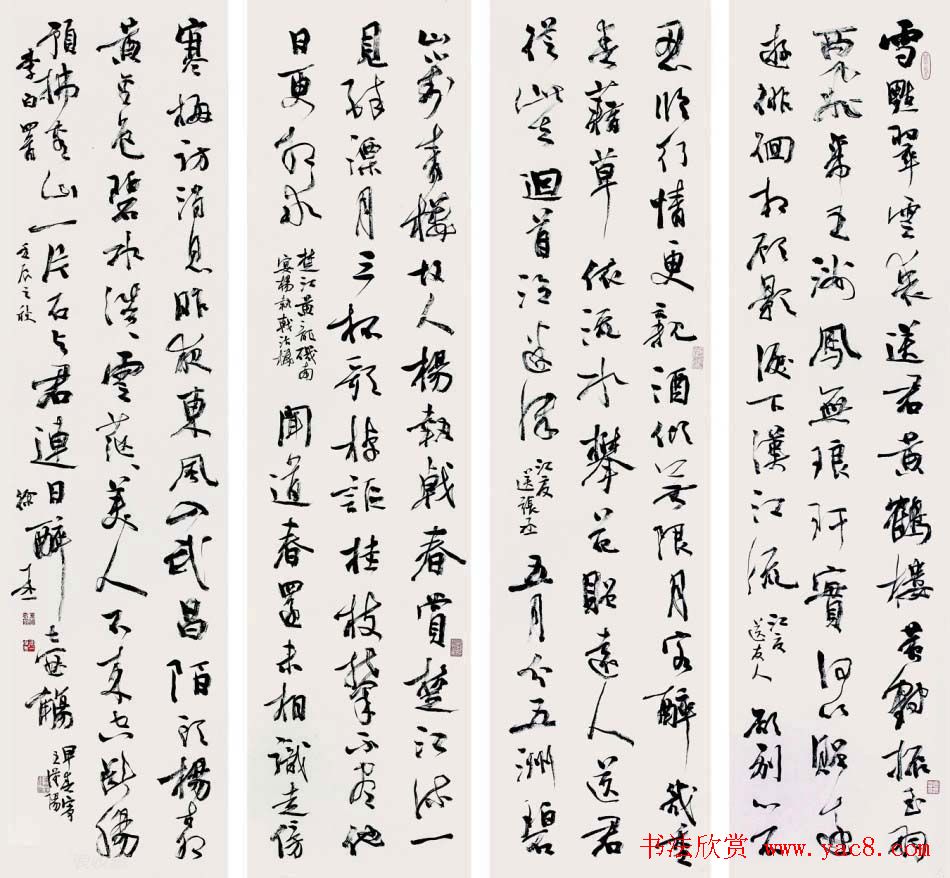 雪點翠雲裘送君黃鶴樓黃鶴振玉羽
西飛帝王洲鳳無琅玕實何以贈遠
遊徘徊相顧影淚下漢江流 江夏送友人 欲別心不
忍臨行情更親酒傾無限月客醉幾重
春藉草依流水攀花贈遠人送君
從此去迴首泣迷津 江夏送張丞 五月入五洲碧
山對青樓故人楊執戟春賞楚江流一
見醉漂月三杯歌棹謳桂枝攀不盡他
日更相求 楚江黃龍磯南宴楊執戟治樓 聞道春還未相識走傍
寒梅訪消息昨夜東風入武昌陌頭楊柳
黃金色碧水浩、雲茫、美人不來空斷腸
預拂青山一片石與君連日醉壺觴 早春寄王漢陽
李白四首 壬辰之秋 徐
书法欣赏 www.yac8.com